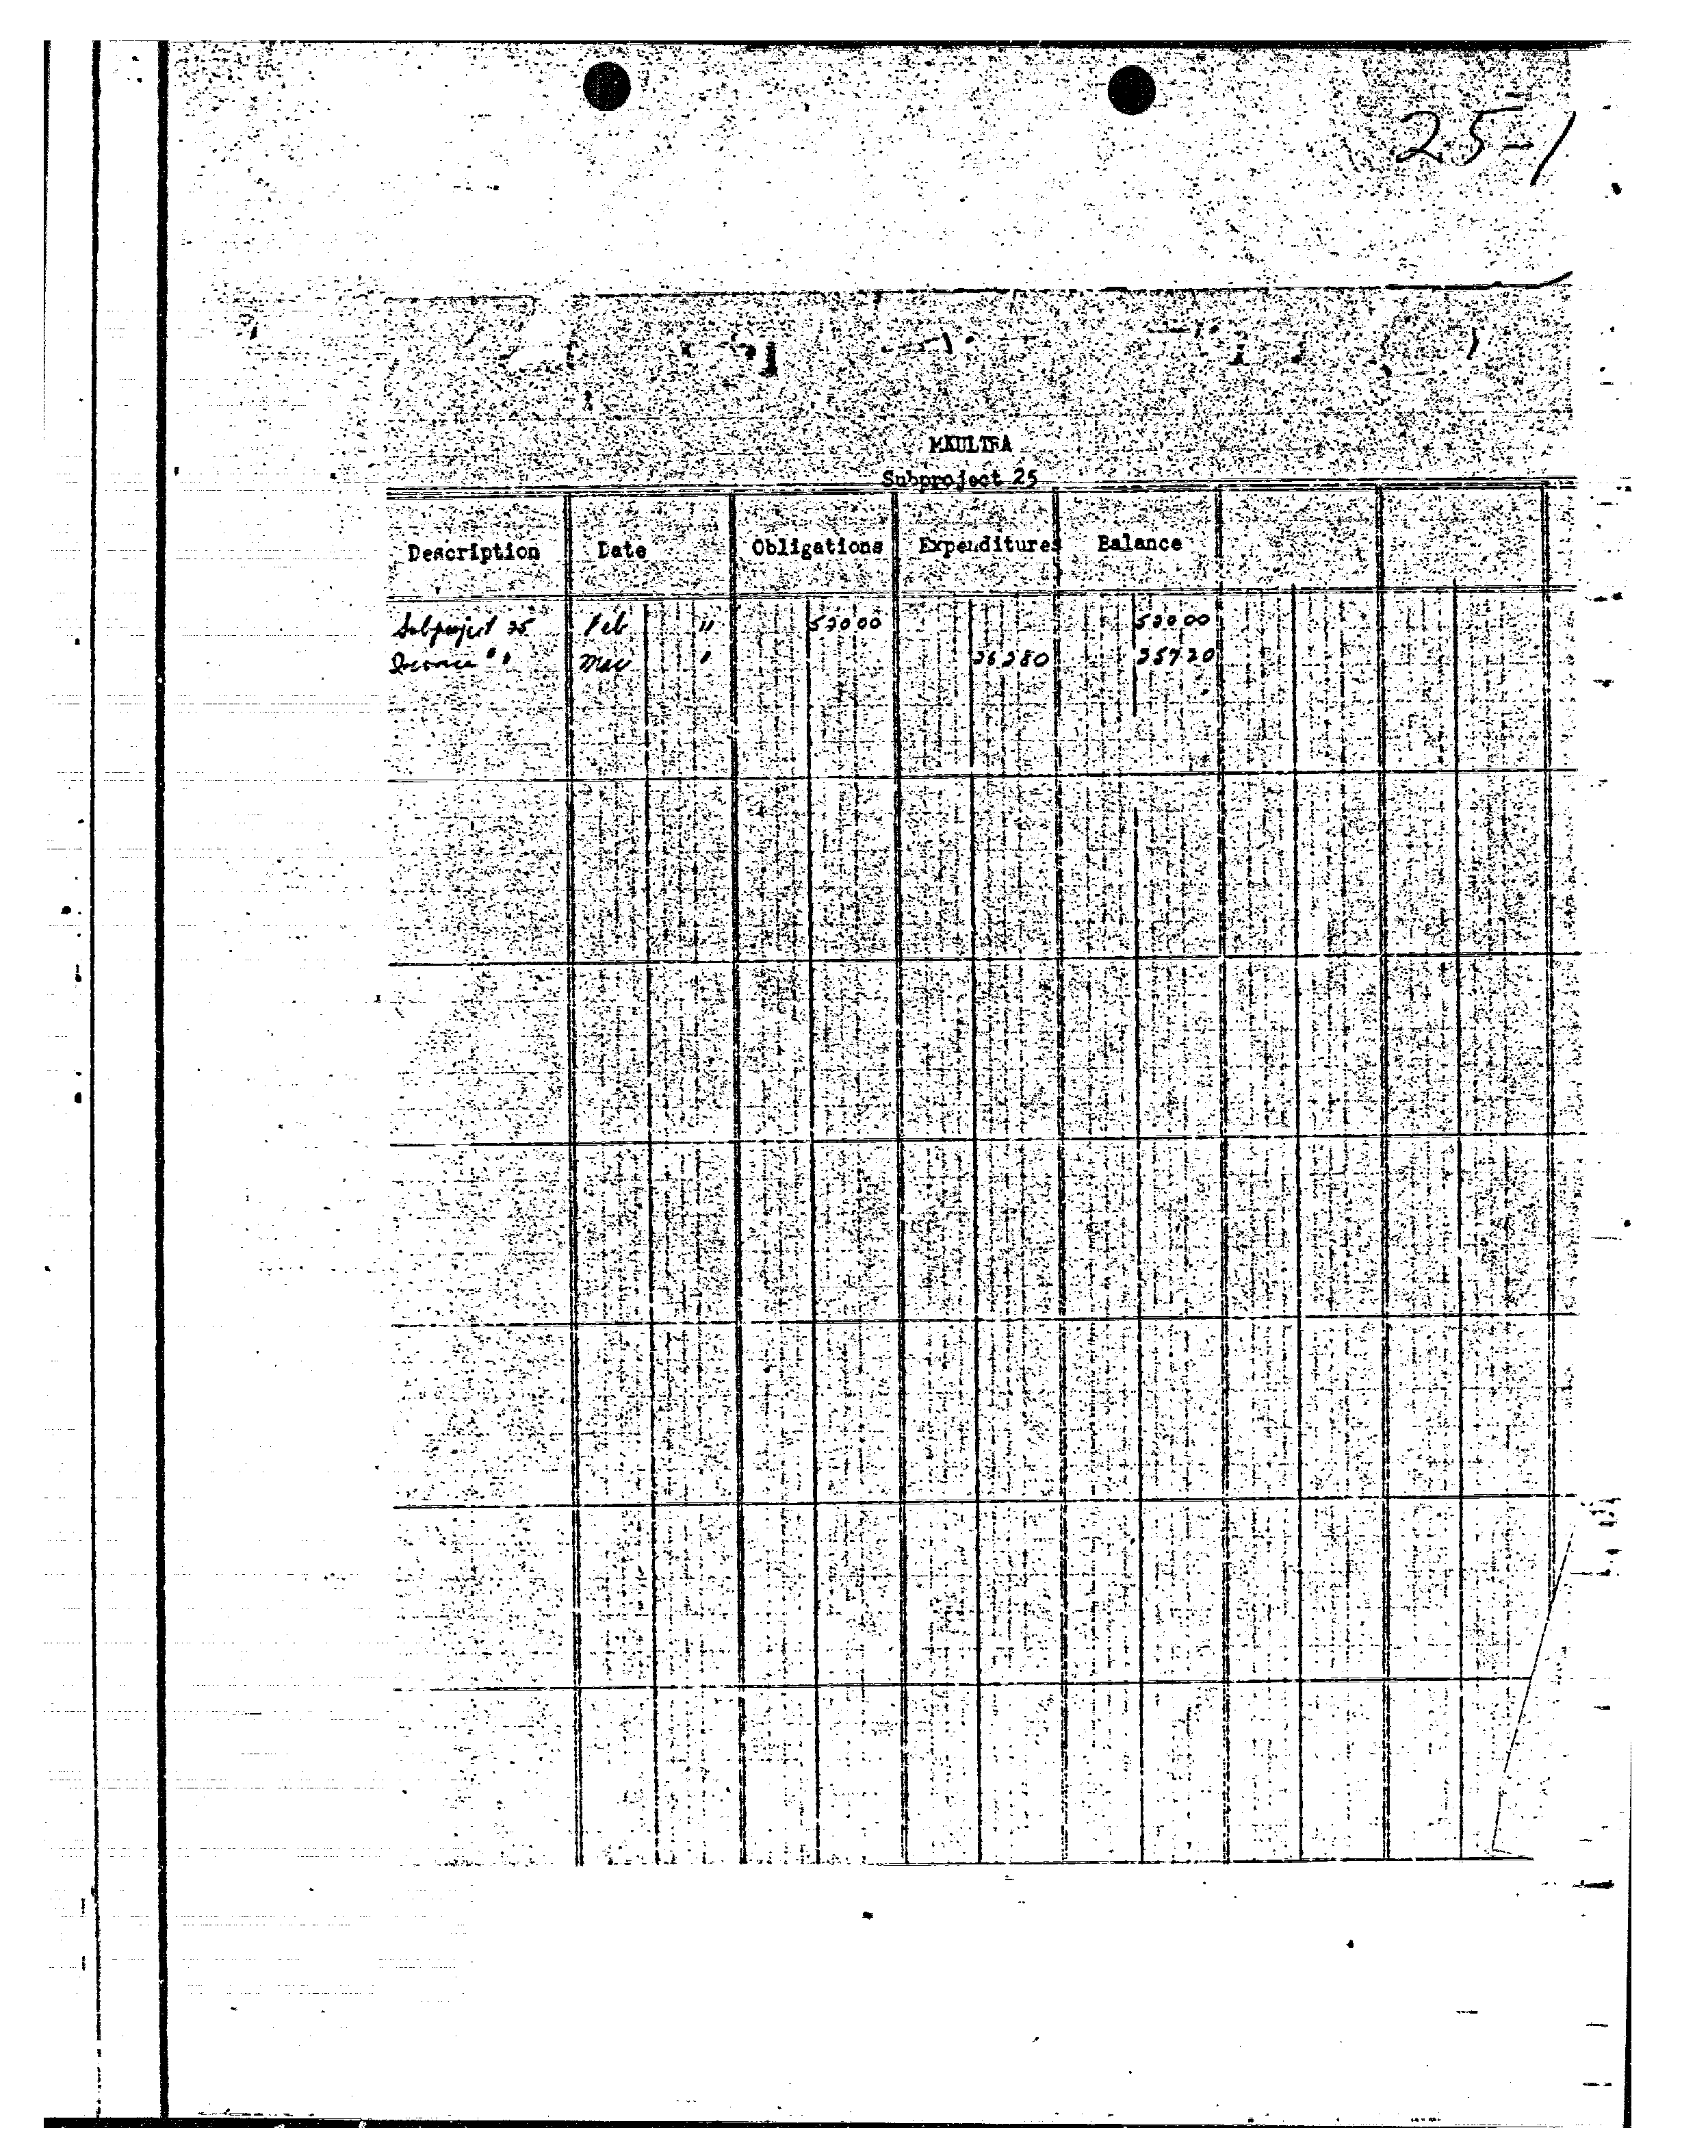 25-1
MKULTRA
Subproject 25
Description Date Obligations Expenditures Balance
Subproject 25 Feb 11 520000 520000
Invoice #1 Mar 26280